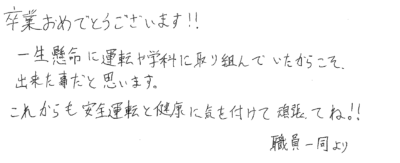 卒業おめでとうございます!!
一生懸命に運転や学科に取り組んでいたからこそ、
出来た事だと思います。
これからも安全運転と健康に気を付けて頑張ってね!!
職員一同より